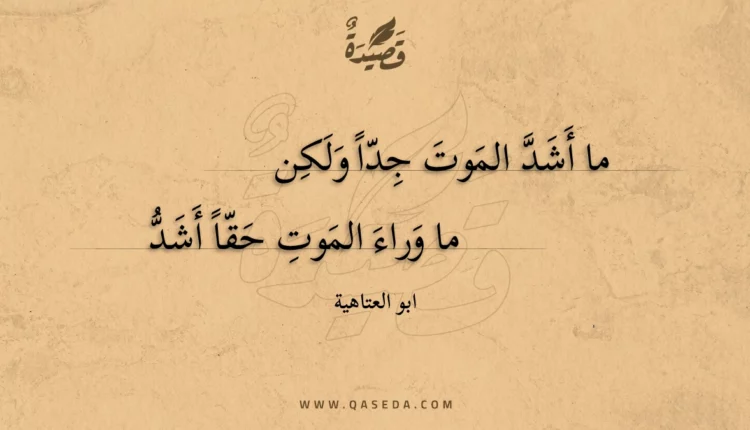 قَصِيدَةٌ
ما أَشَدَّ المَوتَ جِدّاً وَلَكِن
ما وَراءَ المَوتِ حَقّاً أَشَدُّ
ابو العتاهية
WWW.QASEDA.COM